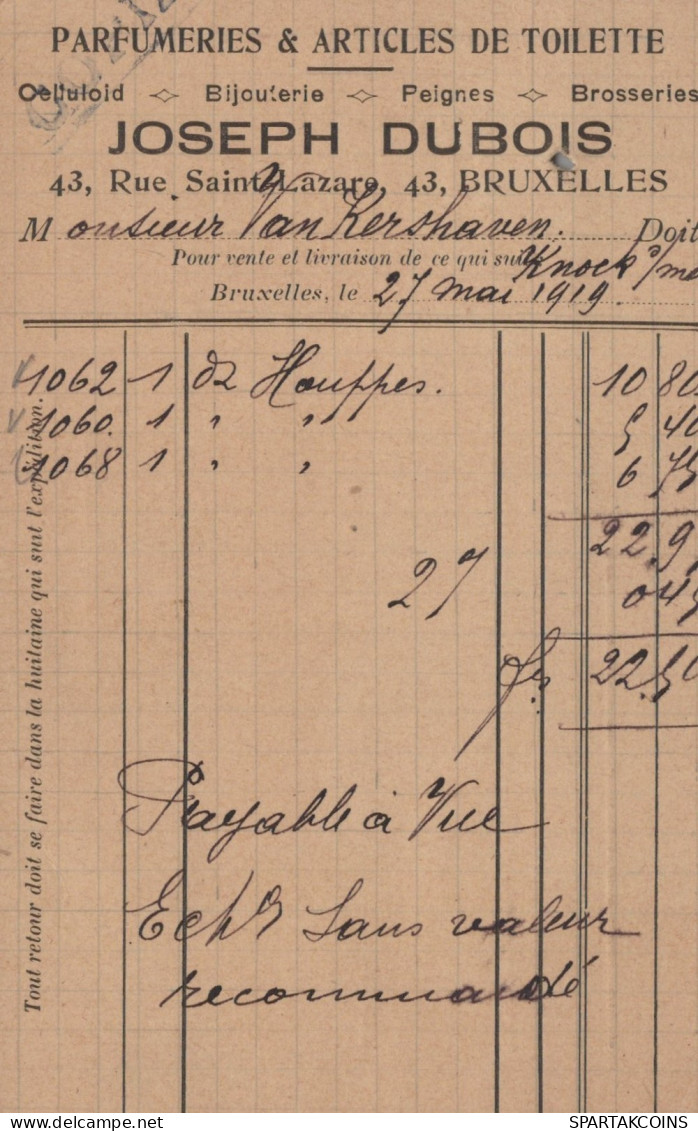 PARFUMERIES & ARTICLES DE TOILETTE
Celluloid Bijouterie Peignes Brosseries
JOSEPH DUBOIS
43, Rue Saint-Lazare, 43, BRUXELLES
Monsieur Van Kershaven. Doit
Pour vente et livraison de ce qui suit
Knock s/me
Bruxelles, le 27 mai 1919.
1062 1 dz Houppes. 10 80
1060. 1 " " 5 40
1068 1 " " 6 75
22.9
27 045
frs 22.50
Payable à Vue
Echs Sans valeur
recommandé
Tout retour doit se faire dans la huitaine qui suit l'expédition.
DELCAMPE.NET SPARTAKCOINS.COM